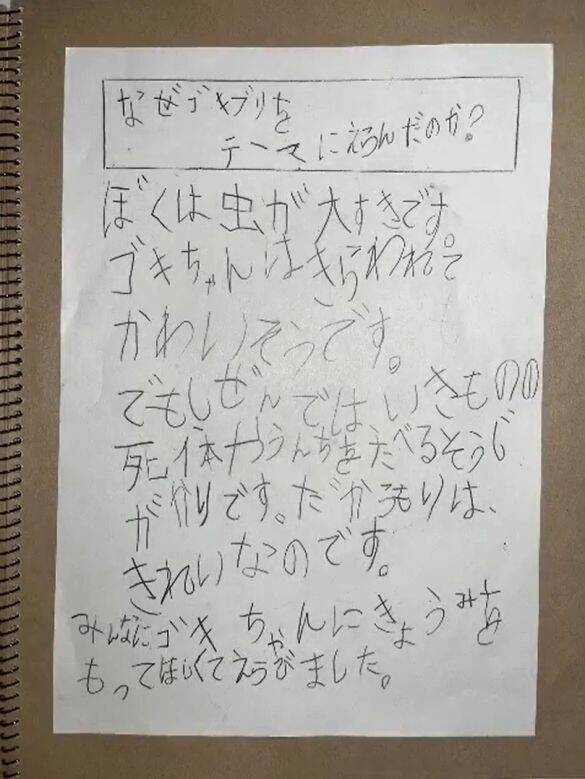 なぜゴキブリを
テーマにえらんだのか?
ぼくは虫が大すきです。
ゴキちゃんはきらわれて
かわいそうです。
でもしぜんではいきものの
死体やうんちをたべるそうじ
がかりです。だからもりは、
きれいなのです。
みんなにゴキちゃんにきょうみを
もってほしくてえらびました。